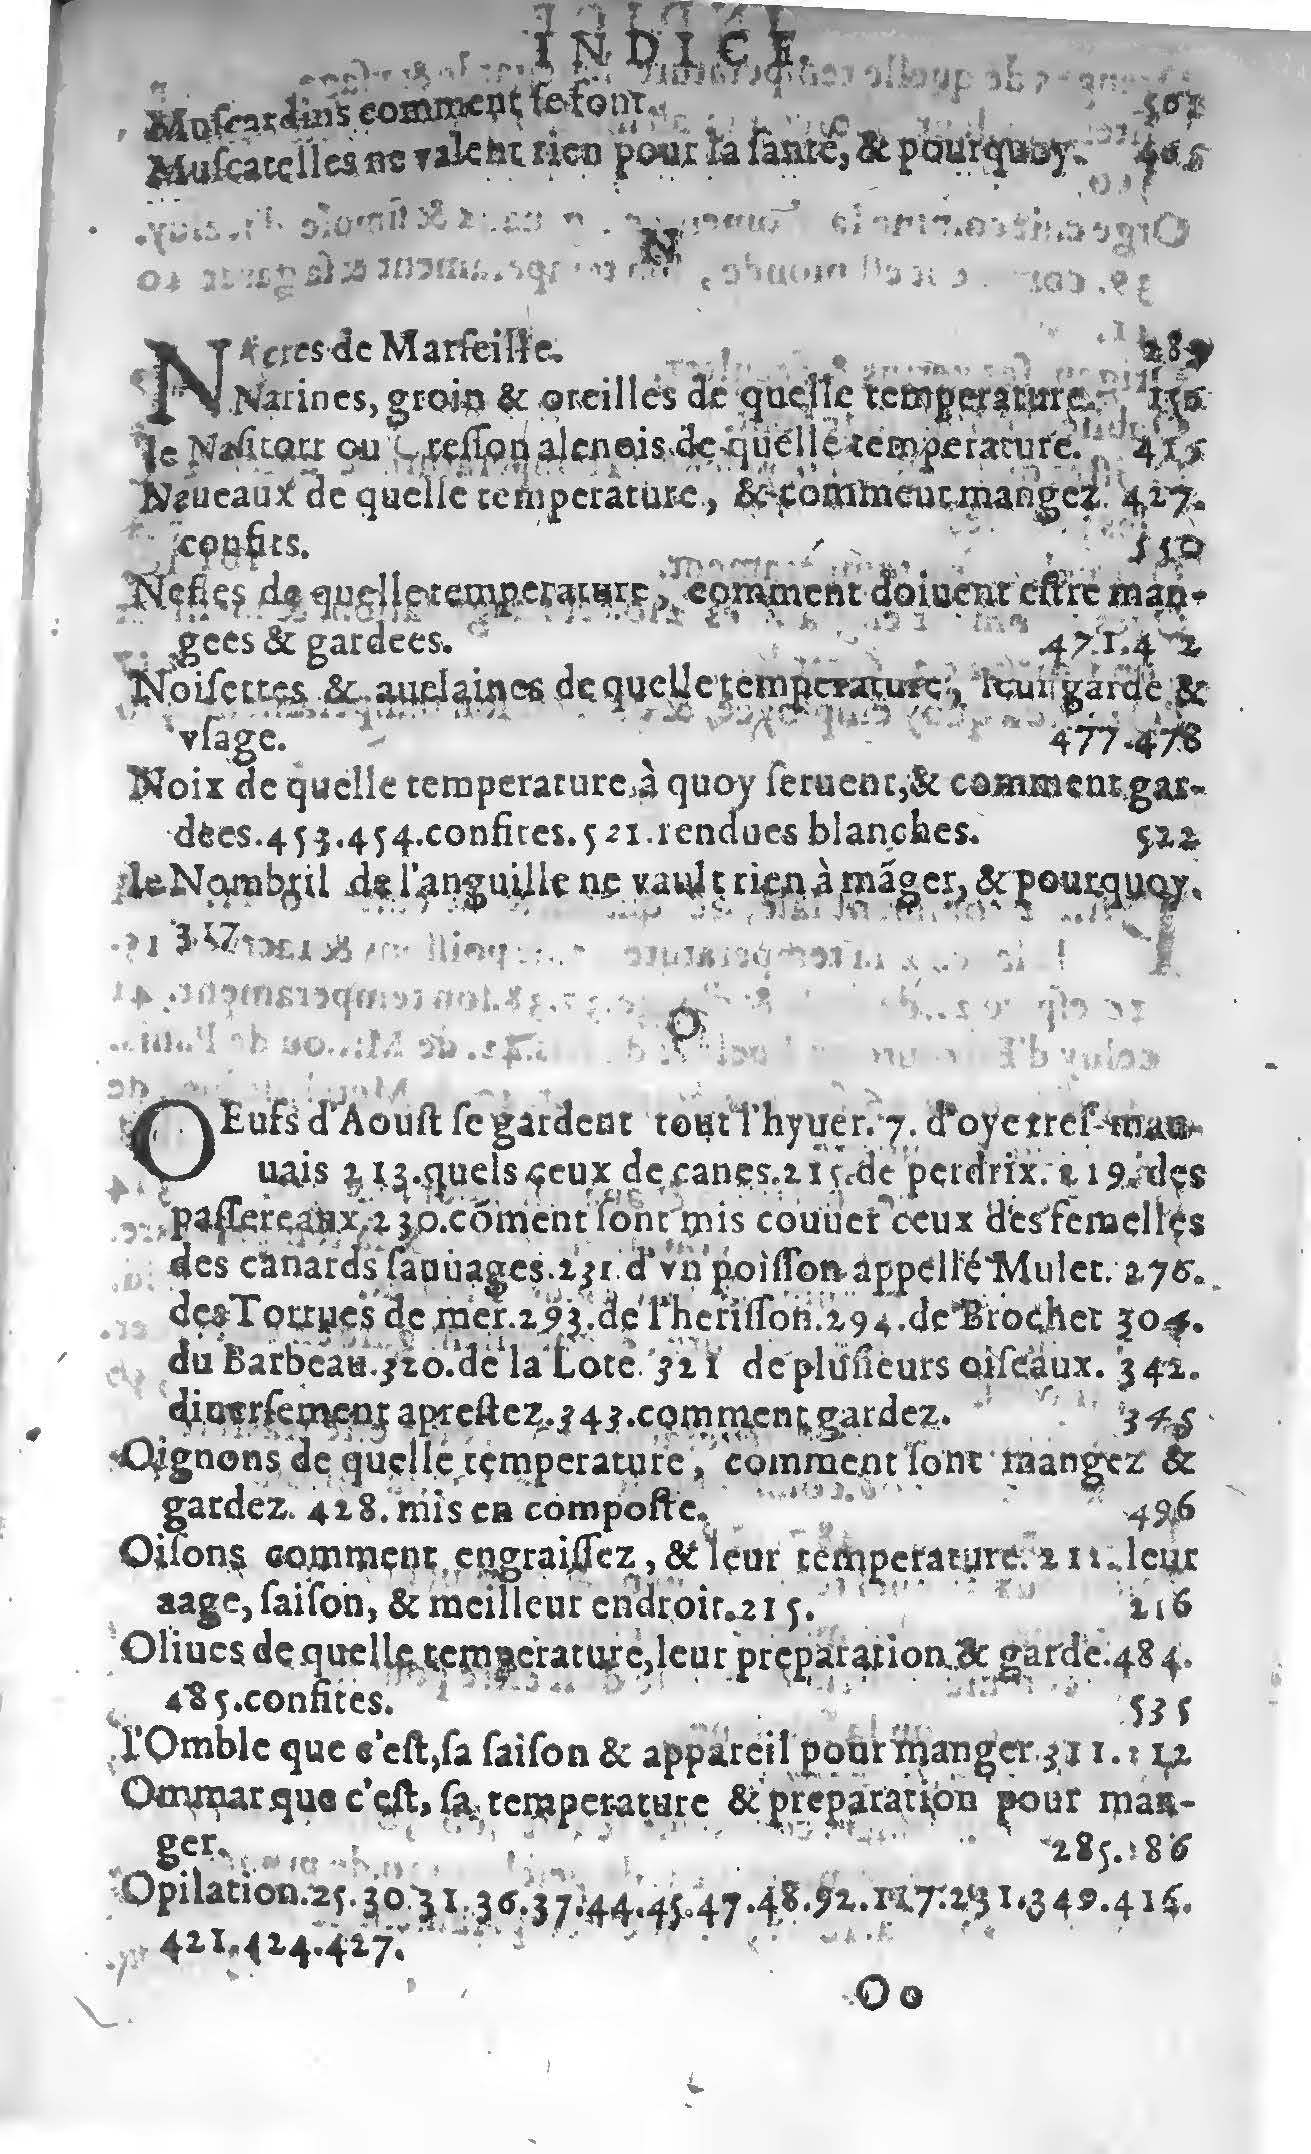 INDICE.
Muſcardins comment ſe font. 501
Muſcatelles ne valent rien pour la ſanté, & pourquoy.
N
NAcres de Marſeille.
Narines, groin & oreilles de quelle temperature. 156
le Naſitort ou Creſſon alenois de quelle temperature. 415
Naueaux de quelle temperature, & comment mangez. 427.
confits. 550
Neſles de quelle temperature, comment doiuent eſtre man-
gees & gardees. 471.472
Noiſettes & auelaines de quelle temperature, leur garde &
vſage. 477.478
Noix de quelle temperature, à quoy ſeruent, & comment gar-
dees. 453.454. confites. 521. rendues blanches. 522
le Nombril de l'anguille ne vault rien à mãger, & pourquoy.
317.
O
OEufs d'Aouſt ſe gardent tout l'hyuer. 7. d'oye treſ-mau-
uais 213. quels ceux de canes. 215. de perdrix. 219. des
paſſereaux. 230. cõment ſont mis couuer ceux des femelles
des canards ſauuages. 231. d'vn poiſſon appellé Mulet. 276.
des Tortues de mer. 293. de l'heriſſon. 294. de Brochet 304.
du Barbeau. 320. de la Lote. 321 de pluſieurs oiſeaux. 342.
diuerſement apreſtez. 343. comment gardez. 345
Oignons de quelle temperature, comment ſont mangez &
gardez. 428. mis en compoſte. 496
Oiſons comment engraiſſez, & leur temperature. 211. leur
aage, ſaiſon, & meilleur endroit. 215. 216
Oliues de quelle temperature, leur preparation & garde. 484.
485. confites. 535
l'Omble que c'eſt, ſa ſaiſon & appareil pour manger. 311. 312
Ommar que c'eſt, ſa temperature & preparation pour man-
ger. 285. 286
Opilation. 25. 30. 31. 36. 37. 44. 45. 47. 48. 92. 117. 231. 349. 416.
421. 424. 427.
Oo